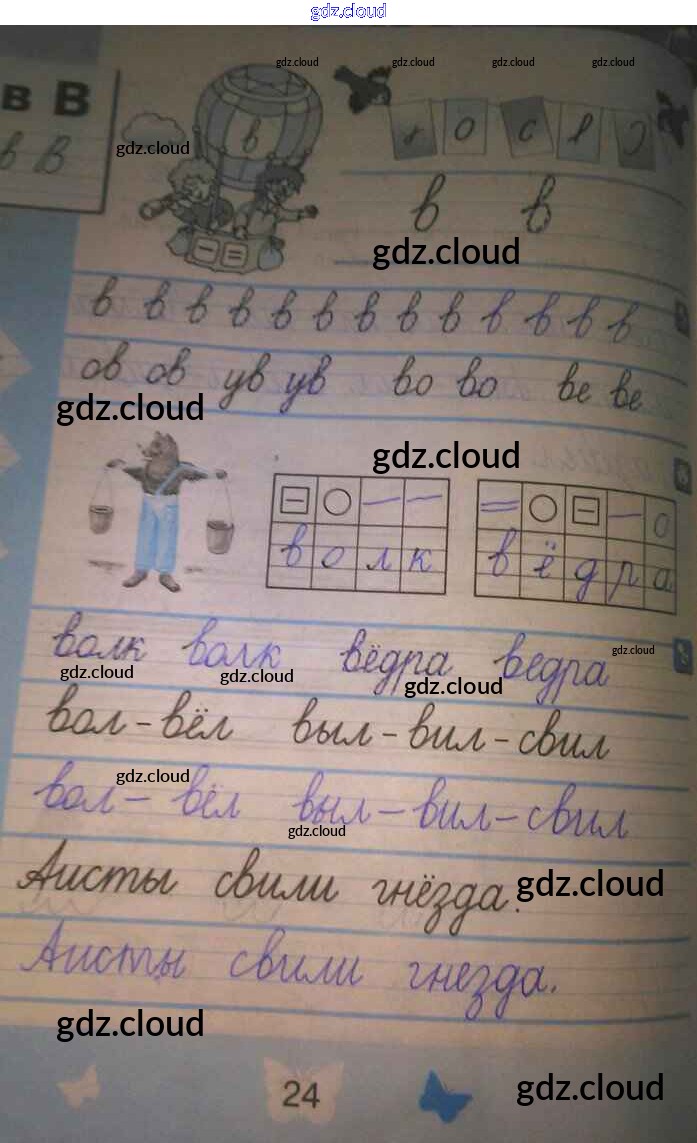 gdz.cloud
gdz.cloud gdz.cloud gdz.cloud gdz.cloud
в В
в В
в
о с
gdz.cloud
в в
gdz.cloud
в в в в в в в в в в в в в
ов ов ув ув во во ве ве
gdz.cloud
gdz.cloud
в о л к
в ё д р а
волк волк вёдра ведра
gdz.cloud
gdz.cloud gdz.cloud gdz.cloud
вол – вёл выл – вил – свил
gdz.cloud
вол – вёл выл – вил – свил
gdz.cloud
Аисты свили гнёзда.
gdz.cloud
Аисты свили гнезда.
gdz.cloud
24
gdz.cloud